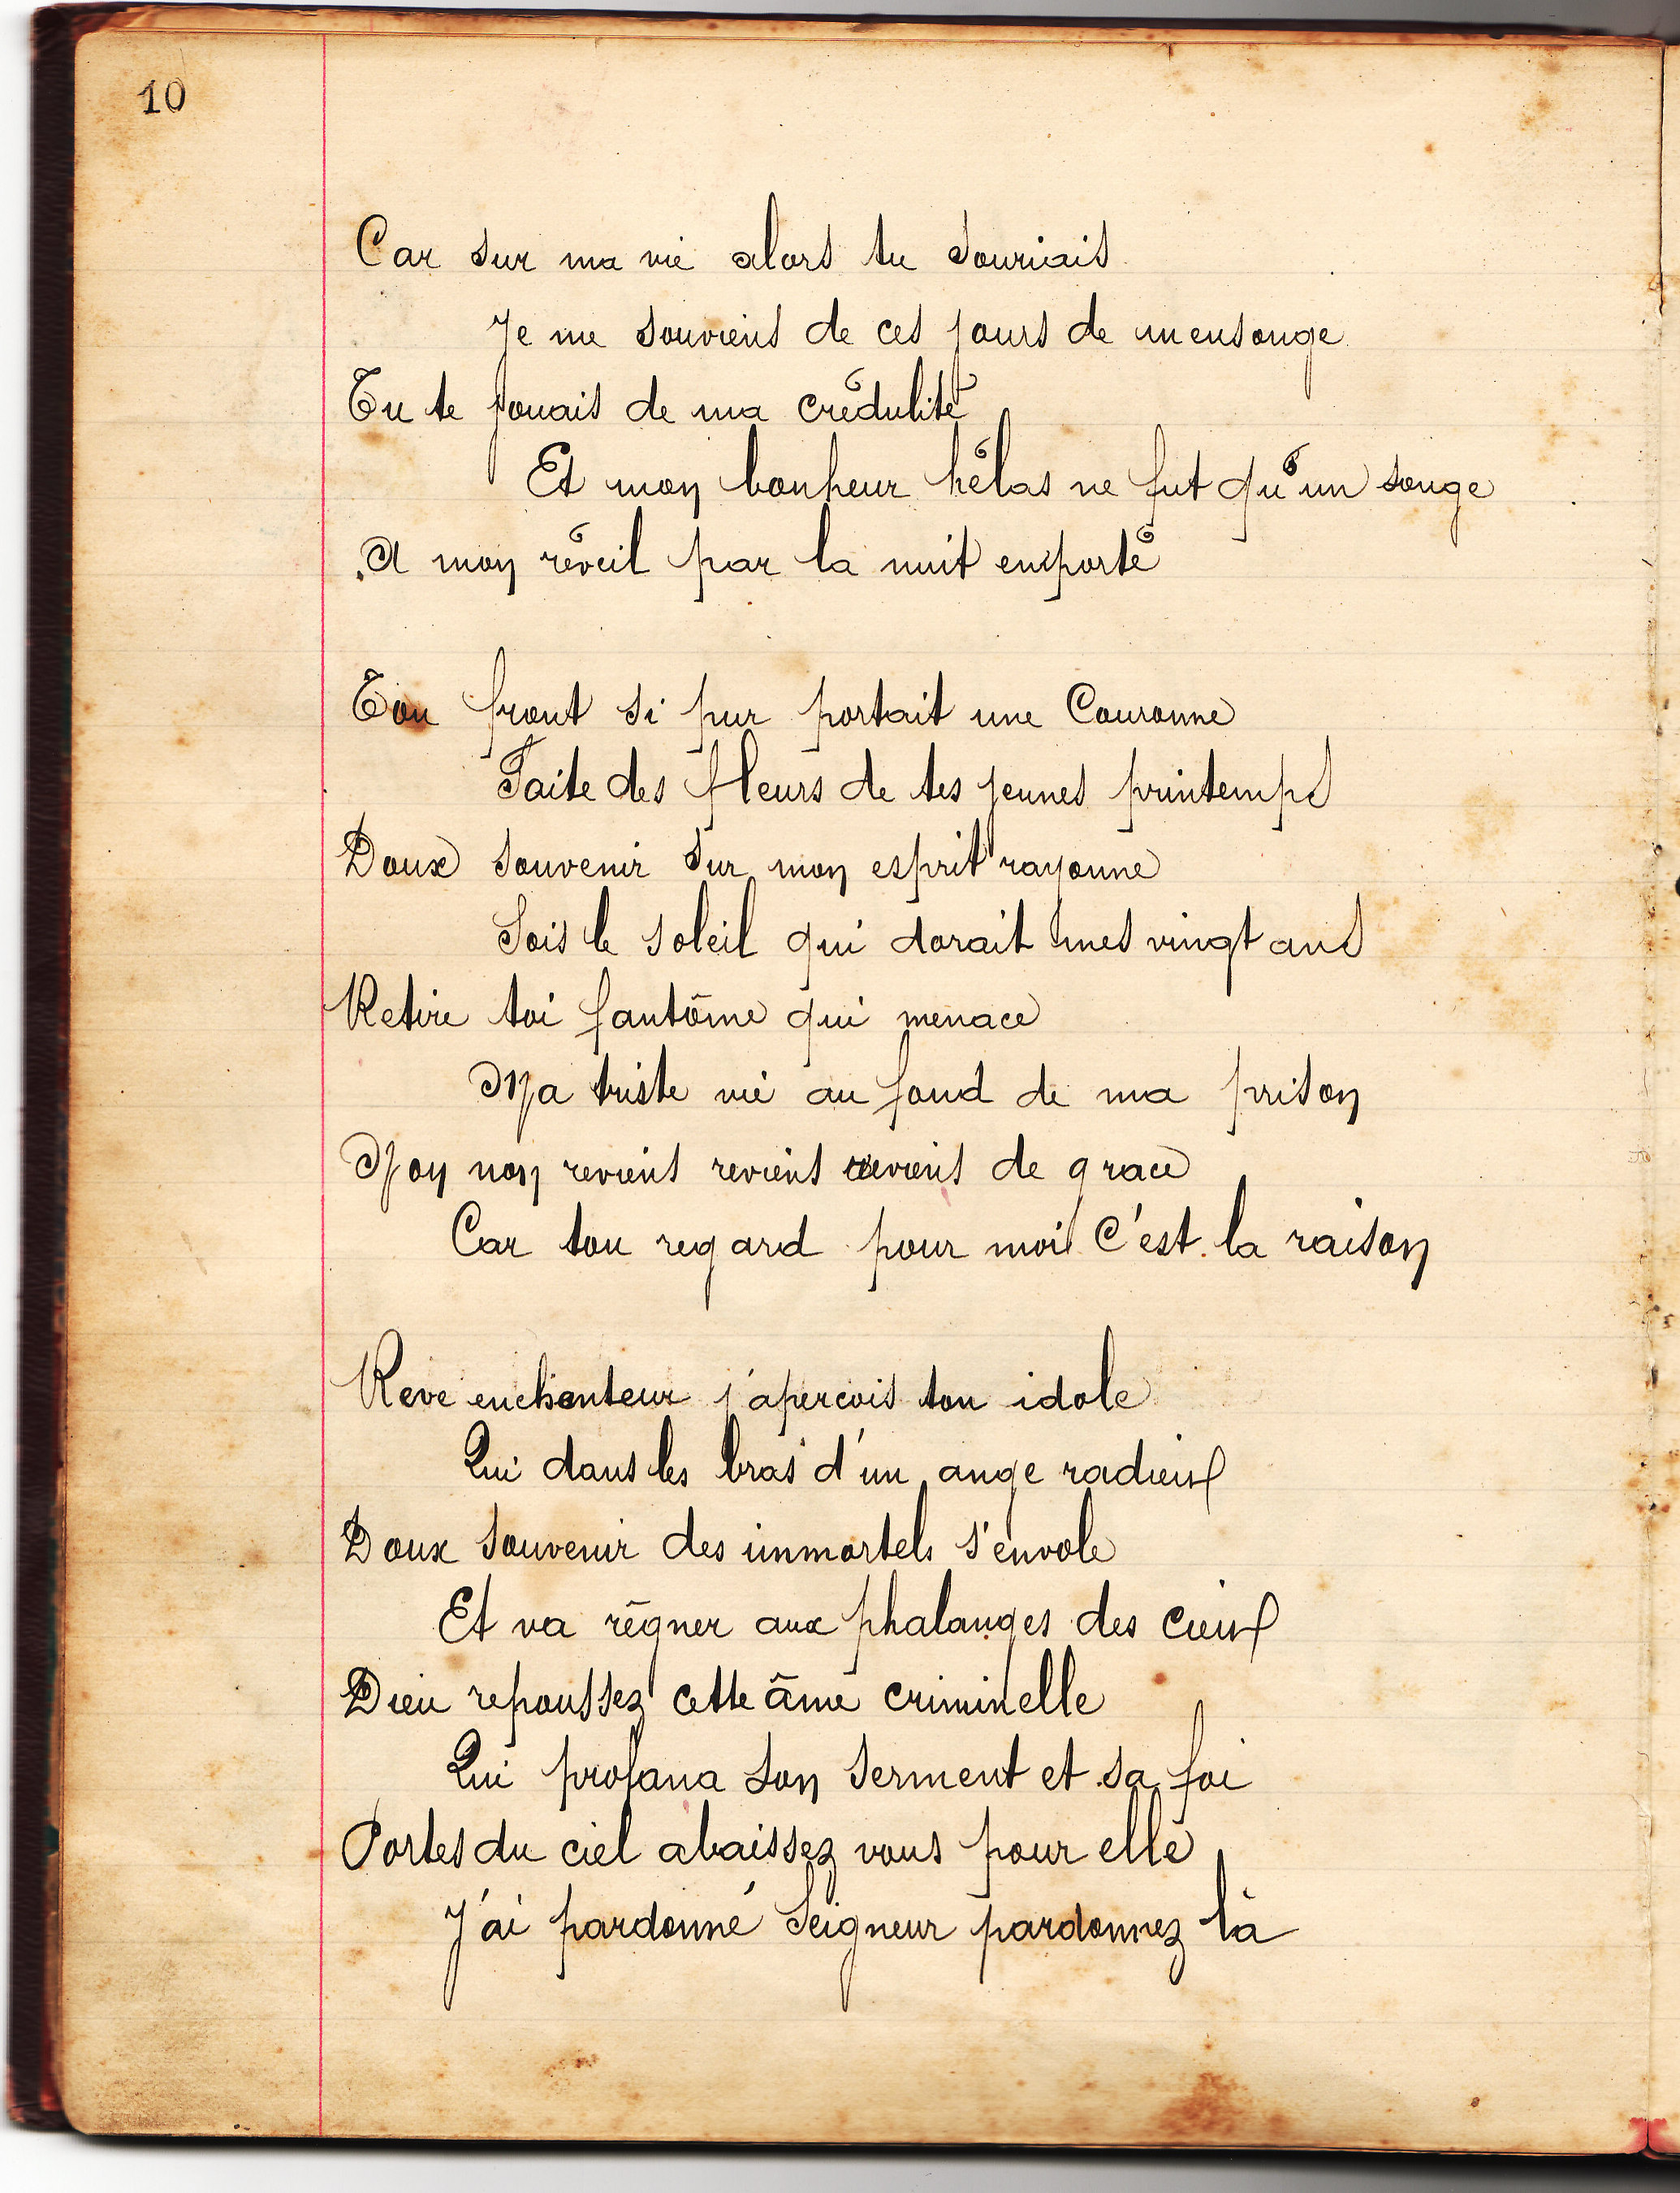 10
Car sur ma vie alors tu souriais
Je me souviens de ces jours de mensonge
Tu te jouais de ma crédulité
Et mon bonheur hélas ne fut qu'un songe
A mon réveil par la nuit emporté
Ton front si pur portait une Couronne
Faite des fleurs de tes jeunes printemps
Doux souvenir sur mon esprit rayonne
Sois le soleil qui dorait mes vingt ans
Retire toi fantôme qui menace
Ma triste vie au fond de ma prison
Non non reviens reviens reviens de grace
Car ton regard pour moi C'est la raison
Reve enchenteur j'apercois ton idole
Qui dans les bras d'un ange radieux
Doux souvenir des immortels s'envole
Et va règner aux phalanges des cieux
Dieu repoussez cette âme criminelle
Qui profana son serment et sa foi
Portes du ciel abaissez vous pour elle
J'ai pardonné Seigneur pardonnez là